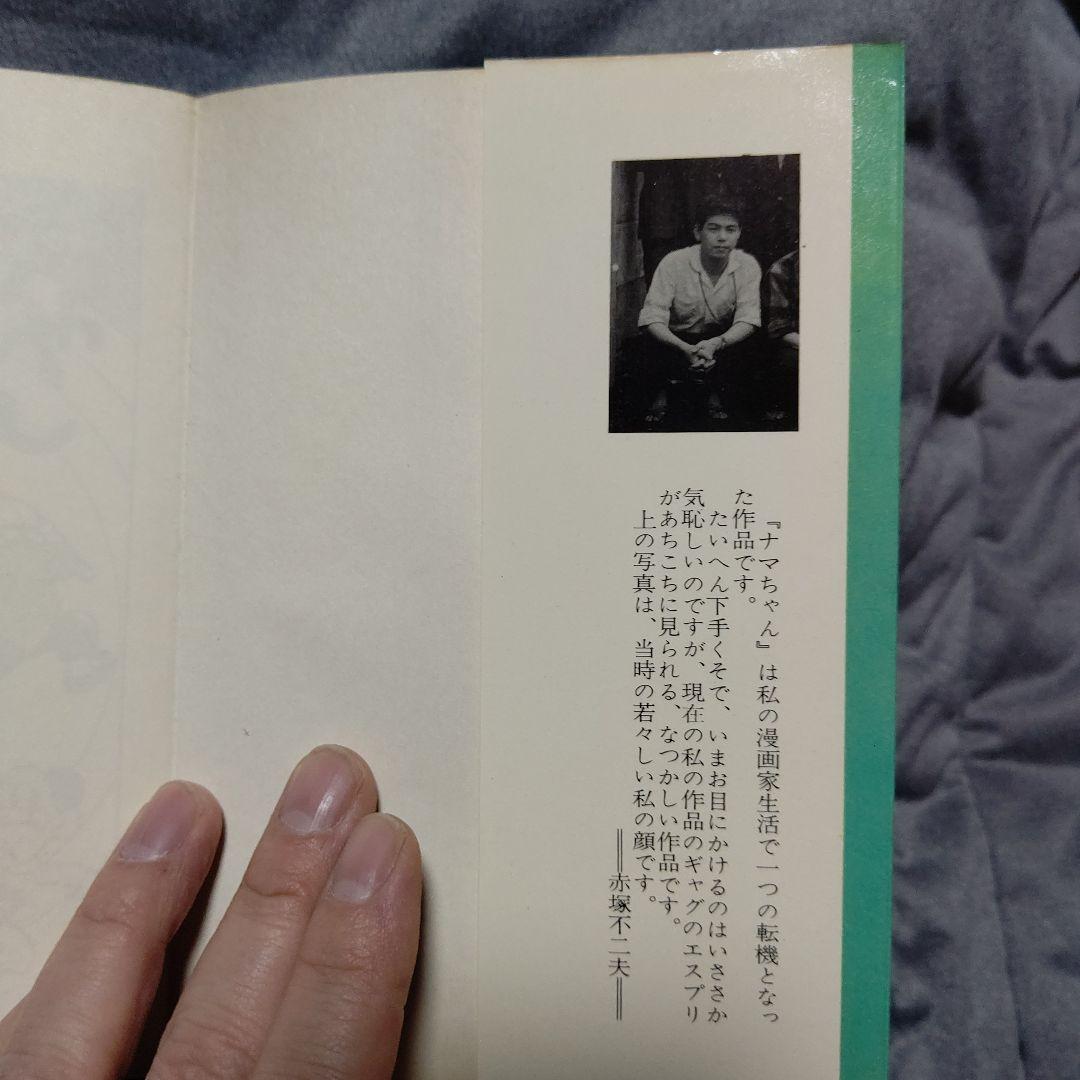 『ナマちゃん』は私の漫画家生活で一つの転機となっ
た作品です。
たいへん下手くそで、いまお目にかけるのはいささか
気恥しいのですが、現在の私の作品のギャグのエスプリ
があちこちに見られる、なつかしい作品です。
上の写真は、当時の若々しい私の顔です。
══赤塚不二夫══